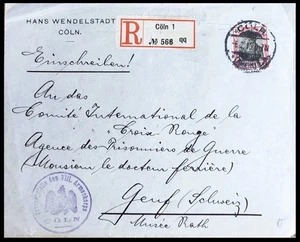 HANS WENDELSTADT
CÖLN.
R Cöln 1
№ 566 qq
CÖLN
Einschreiben!
An das
Comité International de la
"Croix Rouge"
Agence des Prisonniers de Guerre
(Monsieur le docteur Ferrière)
Genf (Schweiz)
Musée Rath
des VIII. Armeekorps
CÖLN